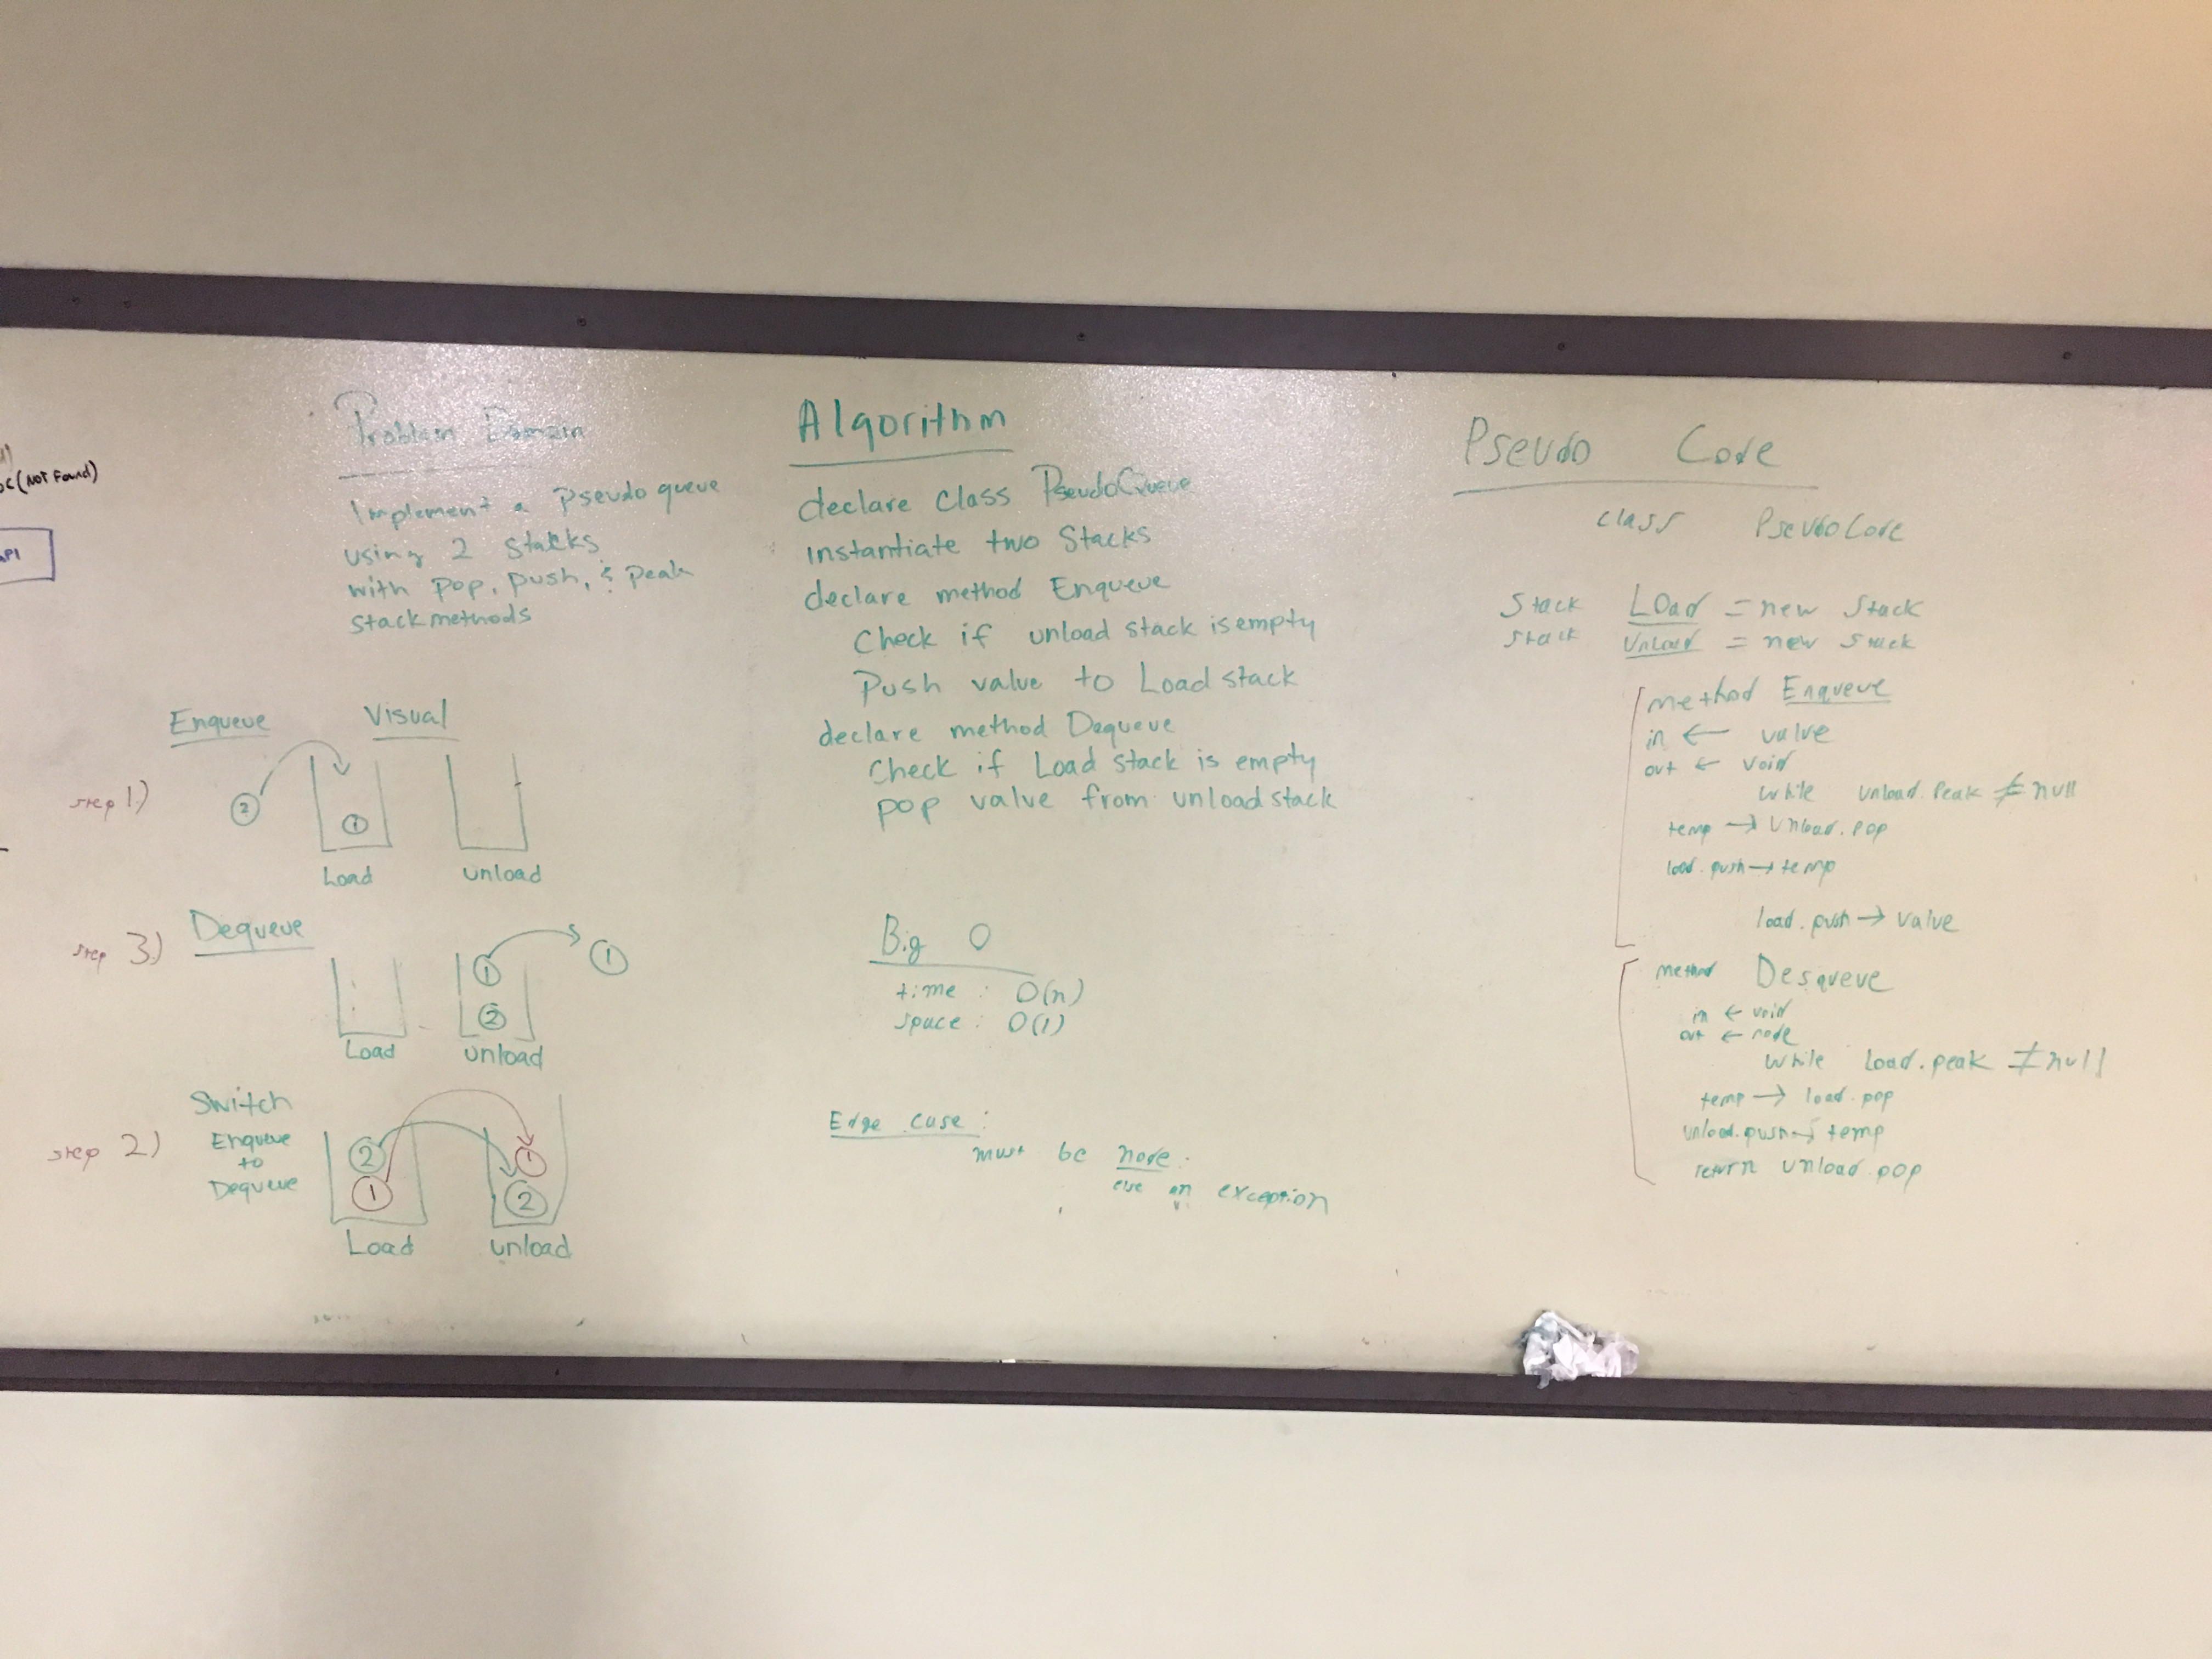 (Not Found)
API
Problem Domain
Implement a Pseudo queue
using 2 stacks
with pop, push, & peak
stack methods
Enqueue Visual
step 1.)
2
1
Load unload
step 3.) Dequeue
1 1
2
Load unload
Switch
Enqueue
to
Dequeue
step 2)
2 1
1 2
Load unload
Algorithm
declare class PseudoQueue
instantiate two Stacks
declare method Enqueue
Check if unload stack is empty
Push value to Load stack
declare method Dequeue
Check if Load stack is empty
pop value from unload stack
Big O
time : O(n)
space : O(1)
Edge case:
must be node.
an exception
Pseudo Code
class PseudoCode
Stack Load = new Stack
Stack Unload = new Stack
method Enqueue
in ← value
out ← void
while unload.Peak ≠ null
temp → Unload.pop
load.push → temp
load.push → value
method Desqueue
in ← void
out ← node
while load.peak ≠ null
temp → load.pop
unload.push → temp
return unload.pop